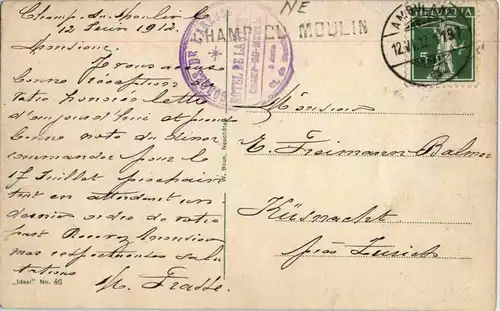 Champ-du-Moulin le
12 Juin 1912.
Monsieur
Je vous accuse
bonne réception
votre honorée lettre
d'aujourd'hui et prend
bonne note du diner
commandée pour le
1er Juillet prochain
tant en attendant un
dernier ordre de votre
part Recevez Monsieur
mes respectueuses salu-
tations
„Ideal" No. 46
NE
CHAMP-DU-MOULIN
HOTEL DE LA
CHAMP-DU-MOULIN
AMBULANT
12.VI.12
Monsieur
E. Freimann-Balmer
Küsnacht
près Zurich